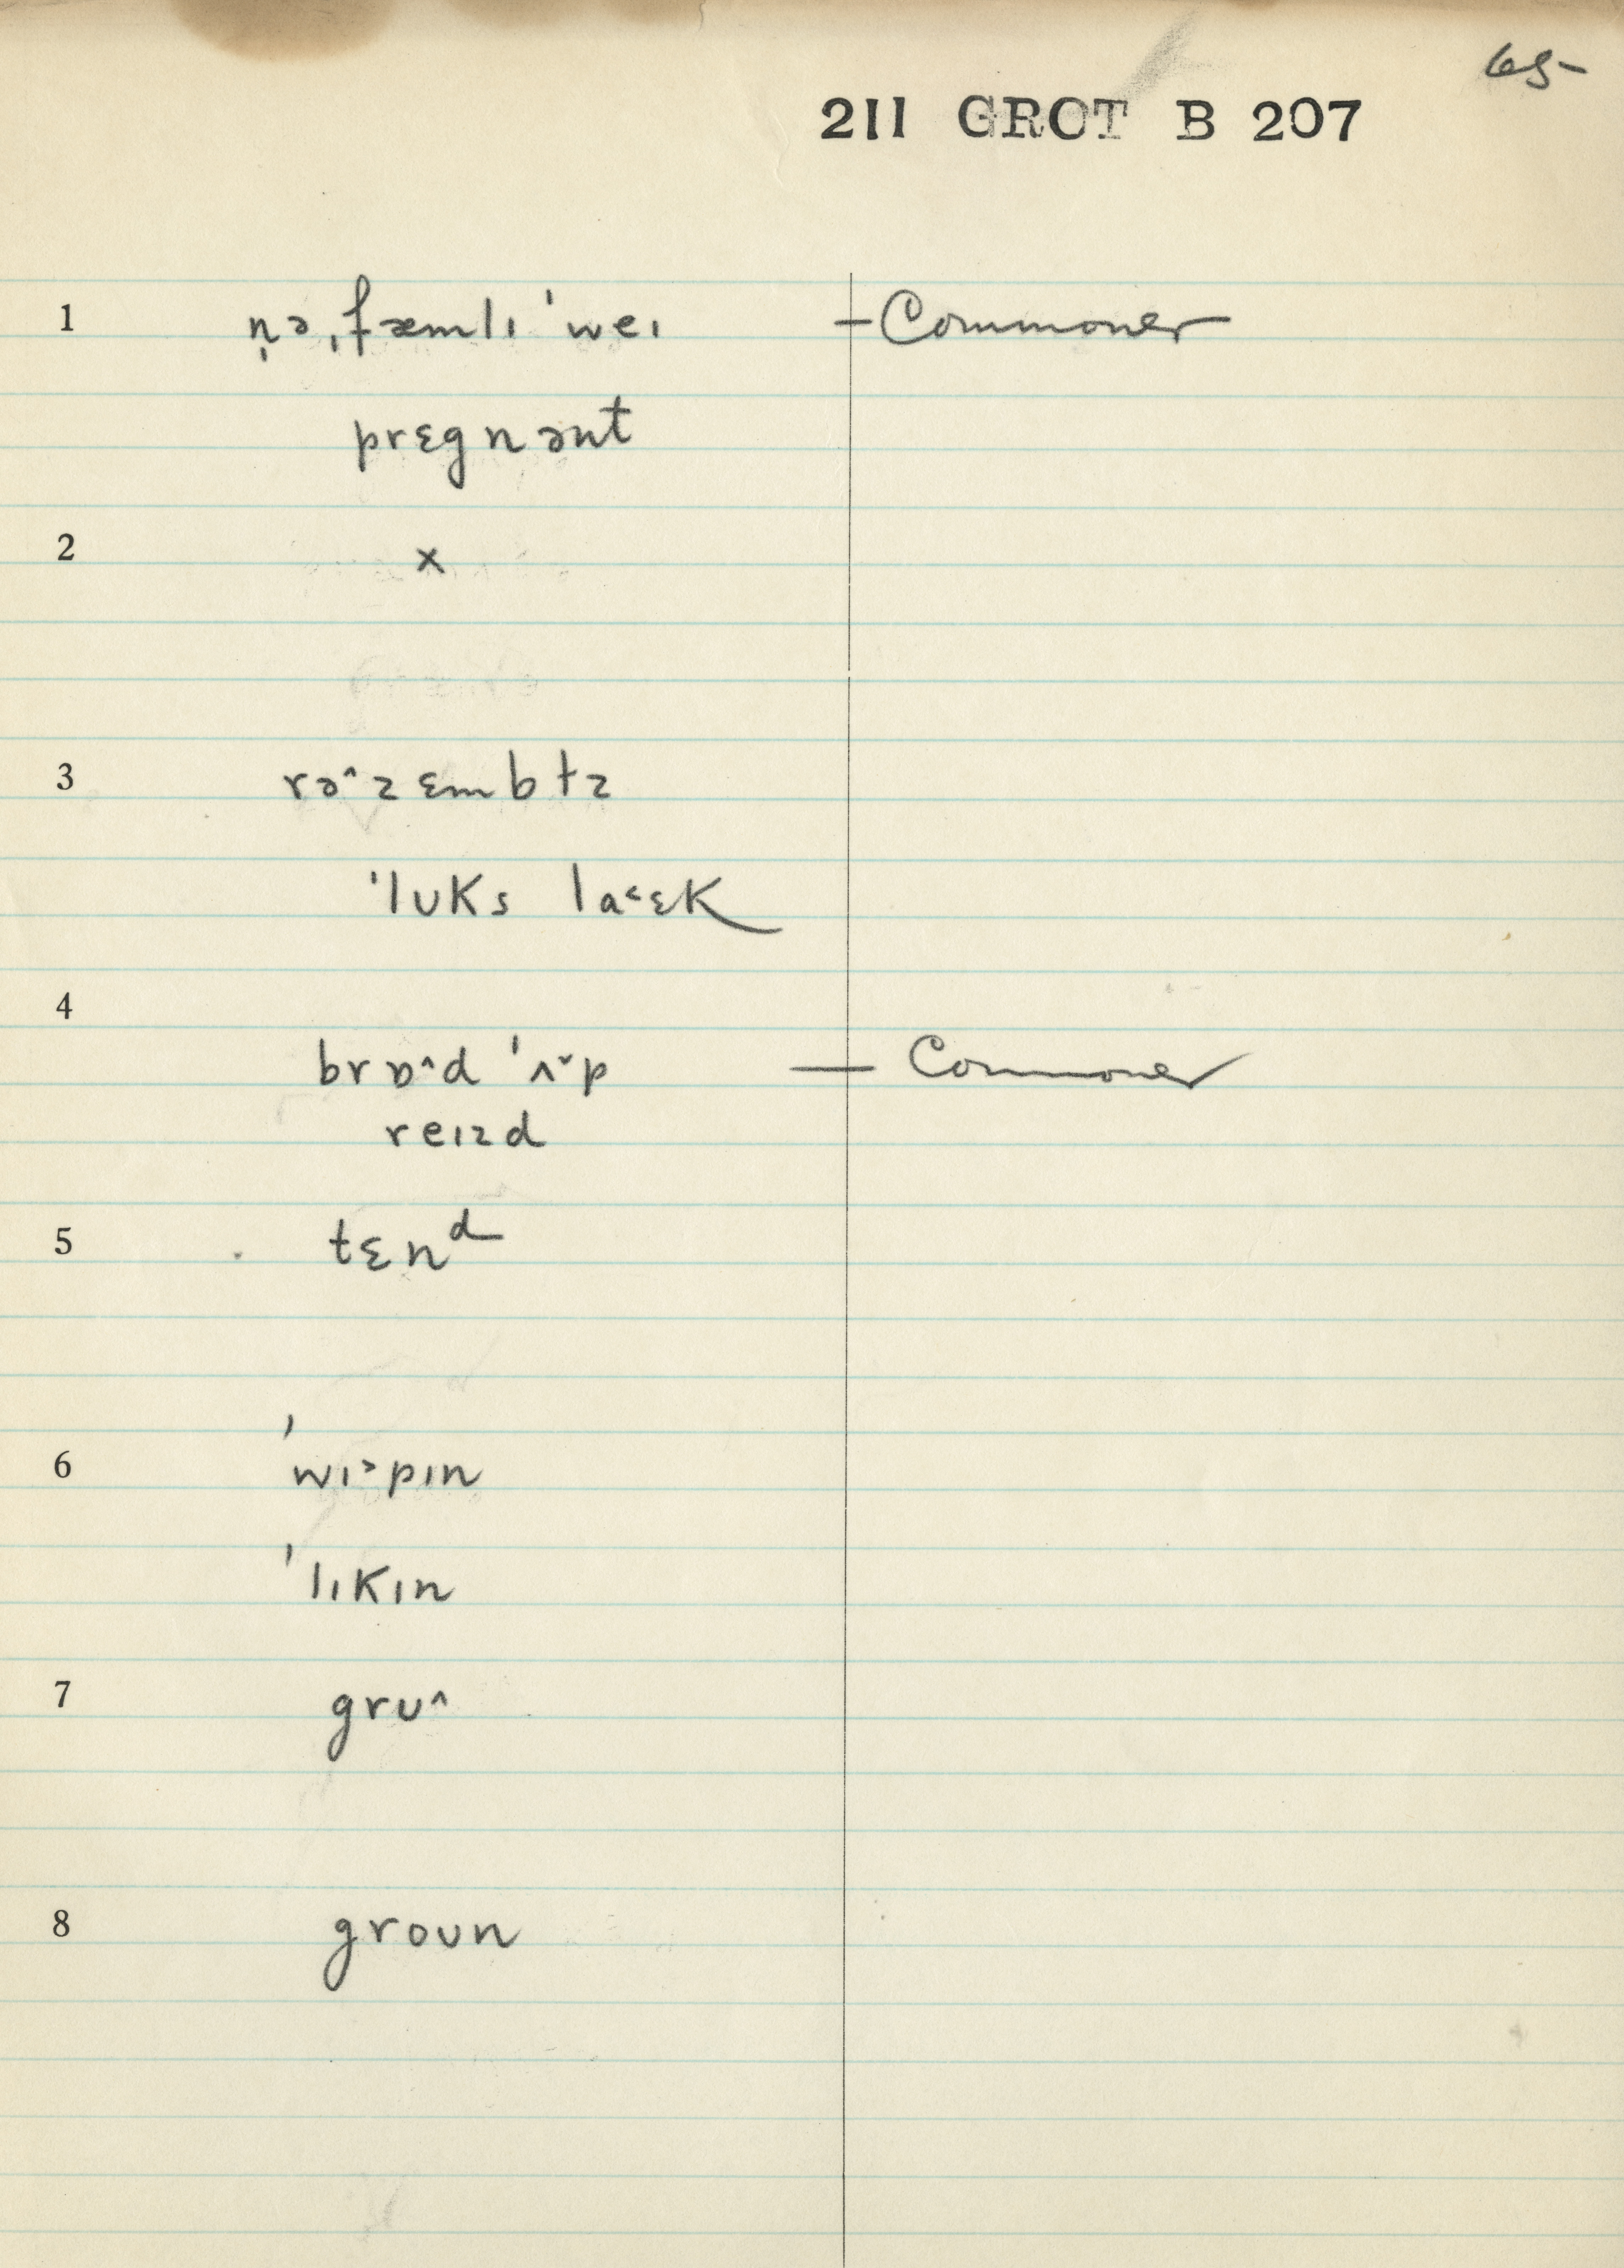 65-
211 GROT B 207
1 n̩ə ˌfæmlɪ ˈweɪ — Commoner
prɛgnənt
2 x
3 rə^zɛmbɫz
ˈlʊks laᵋɛk
4
brɒ^d ˈʌ˅p — Commoner
reɪzd
5 tɛnᵈ
6 ˈwɪ˃pɪn
ˈlɪkɪn
7 grʊ^
8 groʊn